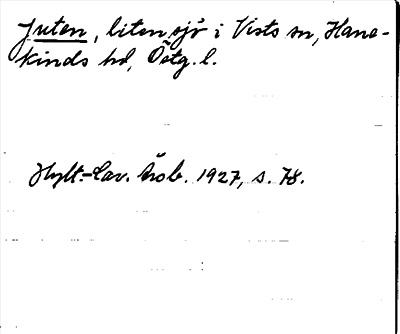 Juten, liten sjö i Vists sn, Hane-
kinds hd, Östg. l.
Hylt.-Cav. årsb. 1927, s. 78.